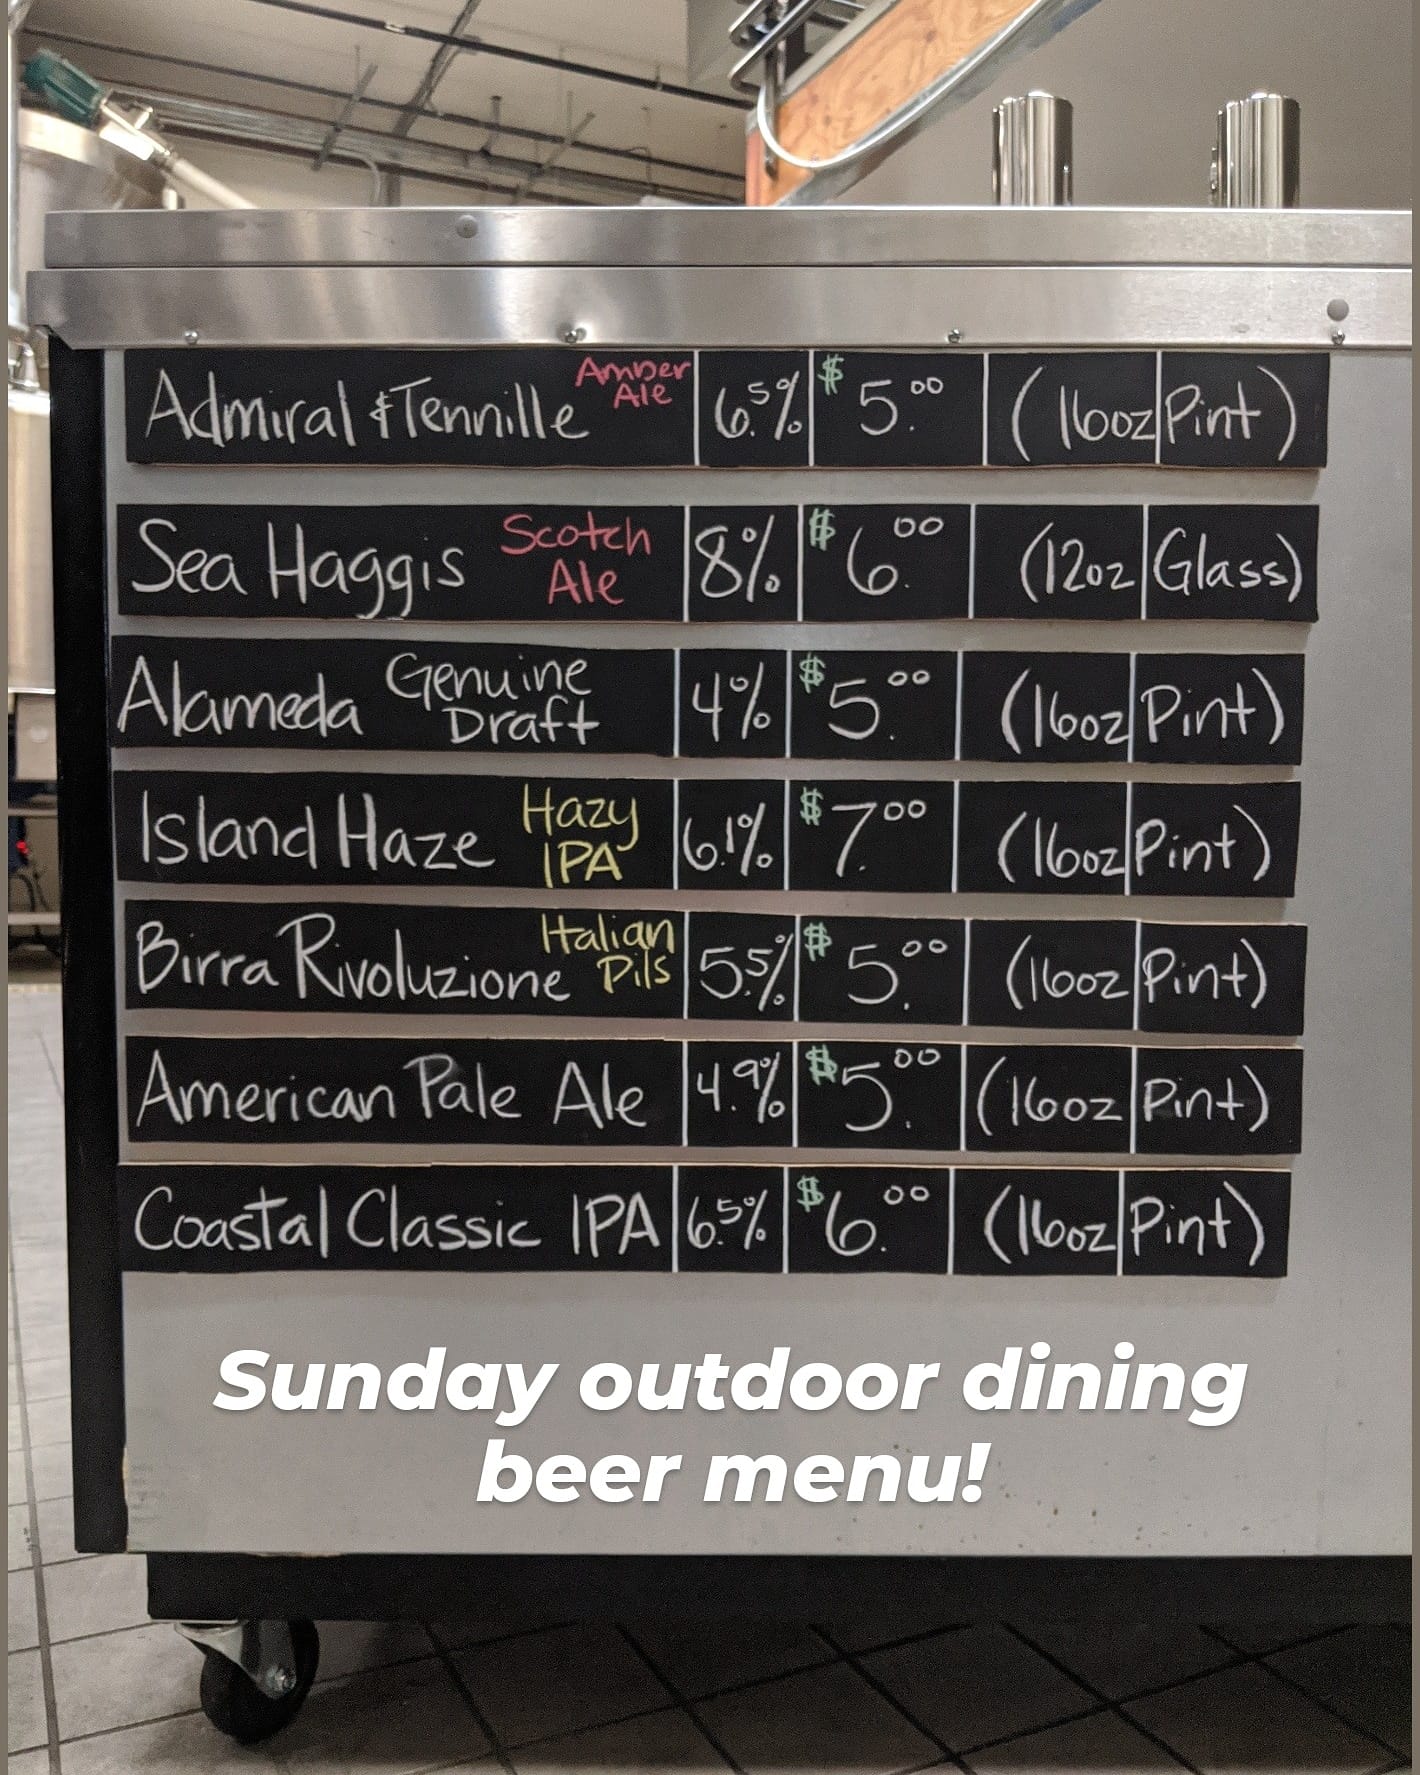 Admiral & Tennille Amber Ale 6.5% $5.00 (16oz Pint)
Sea Haggis Scotch Ale 8% $6.00 (12oz Glass)
Alameda Genuine Draft 4% $5.00 (16oz Pint)
Island Haze Hazy IPA 6.1% $7.00 (16oz Pint)
Birra Rivoluzione Italian Pils 5.5% $5.00 (16oz Pint)
American Pale Ale 4.9% $5.00 (16oz Pint)
Coastal Classic IPA 6.5% $6.00 (16oz Pint)
Sunday outdoor dining
beer menu!